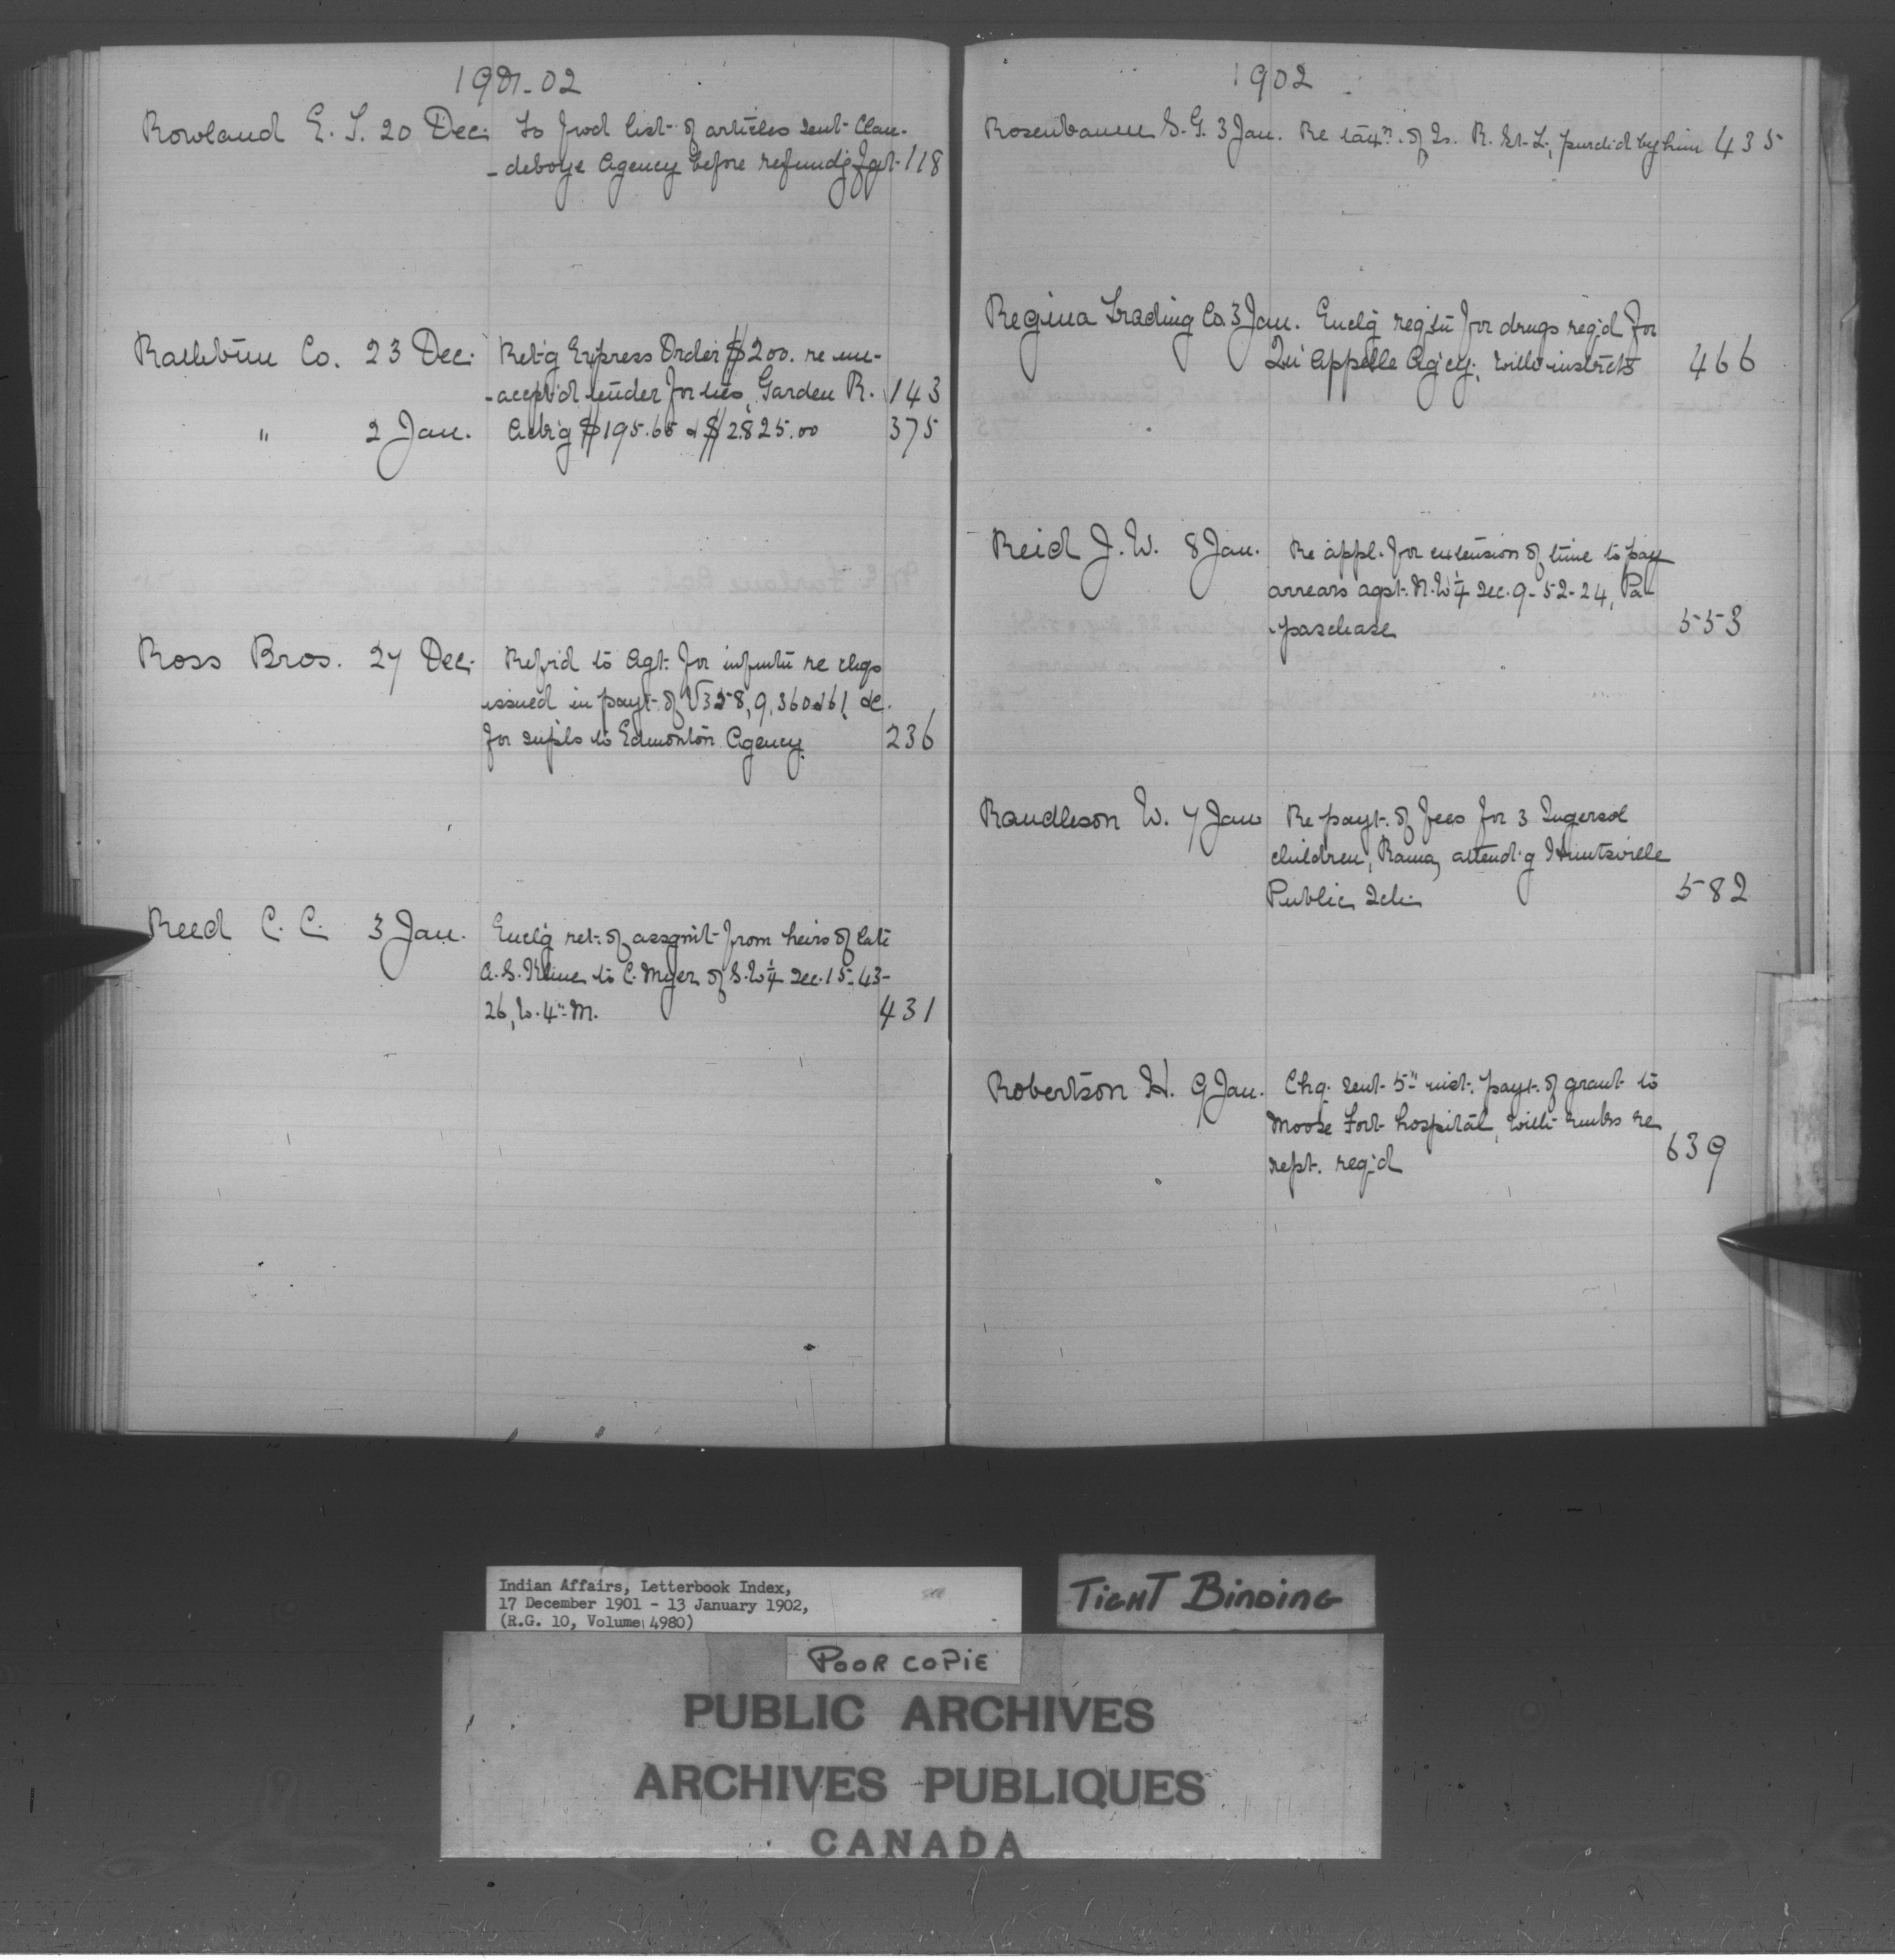 1901-02
Rowland E. S. 20 Dec. To fwd list of articles sent Clan-
-deboye Agency before refundg frgt 118
Rathbun Co. 23 Dec. Ret'g Express Order $200. re un-
-accept'd tender for ties, Garden R. 143
" 2 Jan. Ack'g $195.65 & $2825.00 375
Ross Bros. 27 Dec. Refr'd to Agt. for infmtn re chqs
issued in payt. of V358, 9, 360 & 61, &c.
for supls to Edmonton Agency 236
Reed C. C. 3 Jan. Encl'g ret. of assgnmt from heirs of late
A. S. Kline to C. Myer of S.W¼ Sec. 15-43-
26, W. 4th M. 431
1902
Rosenbaum S. G. 3 Jan. Re tax'n. of Is. R. St. L., purch'd by him 435
Regina Trading Co. 3 Jan. Encl'g reqstn for drugs req'd for
Qu'Appelle Ag'cy. with instrcts 466
Reid J. W. 8 Jan. Re appl. for extension of time to pay
arrears agst. N.W¼ Sec. 9-52-24, Pa-
-paschase 553
Randleson W. 7 Jan Re payt. of fees for 3 Ingersol
children, Rama, attend'g Huntsville
Public Sch. 582
Robertson H. 9 Jan. Chq. sent 5th inst. payt. of grant to
Moose Fort hospital, with rmks re
rept. req'd 639
Indian Affairs, Letterbook Index,
17 December 1901 - 13 January 1902,
(R.G. 10, Volume 4980)
TIGHT BINDING
POOR COPIE
PUBLIC ARCHIVES
ARCHIVES PUBLIQUES
CANADA